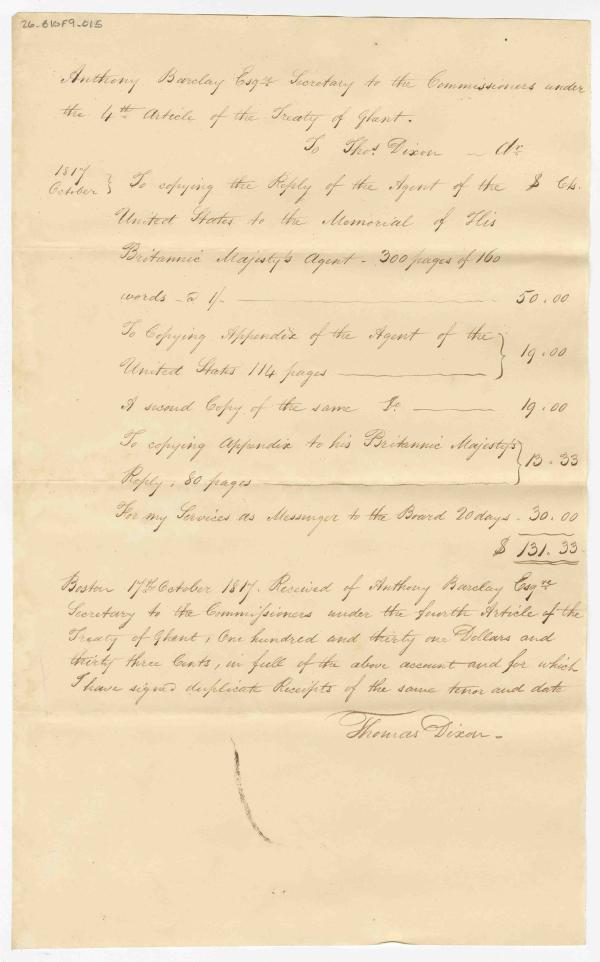 26-B10F9-015
Anthony Barclay Esqre Secretary to the Commissioners under
the 4th Article of the Treaty of Ghant.
To Thos. Dixon - Dr
1817
October } To copying the Reply of the Agent of the $ Cts.
United States to the Memorial of His
Britannic Majesty's Agent - 300 pages of 160
words - @ 1/- 50.00
To Copying Appendix of the Agent of the
United States 114 pages } 19.00
A second Copy of the same Do. 19.00
To copying Appendix to his Britannic Majesty's
Reply, 80 pages } 13.33
For my Services as Messenger to the Board 20 days - 30.00
$ 131.33
Boston 17th October 1817. Received of Anthony Barclay Esqre
Secretary to the Commissioners under the fourth Article of the
Treaty of Ghant, One hundred and thirty one Dollars and
thirty three Cents, in full of the above account and for which
I have signed duplicate Receipts of the same tenor and date
Thomas Dixon -